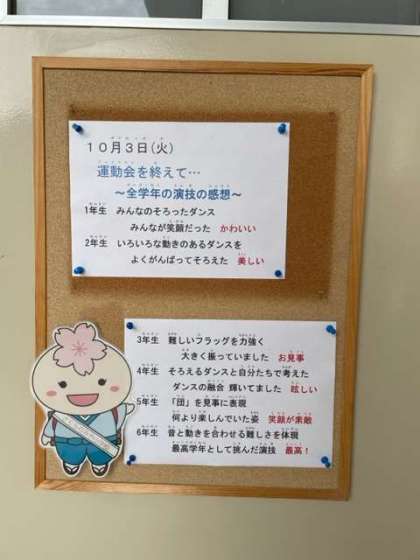 １０月３日（火）
運動会を終えて…
～全学年の演技の感想～
1年生 みんなのそろったダンス
みんなが笑顔だった かわいい
2年生 いろいろな動きのあるダンスを
よくがんばってそろえた 美しい
3年生 難しいフラッグを力強く
大きく振っていました お見事
4年生 そろえるダンスと自分たちで考えた
ダンスの融合 輝いてました 眩しい
5年生 「団」を見事に表現
何より楽しんでいた姿 笑顔が素敵
6年生 音と動きを合わせる難しさを体現
最高学年として挑んだ演技 最高！